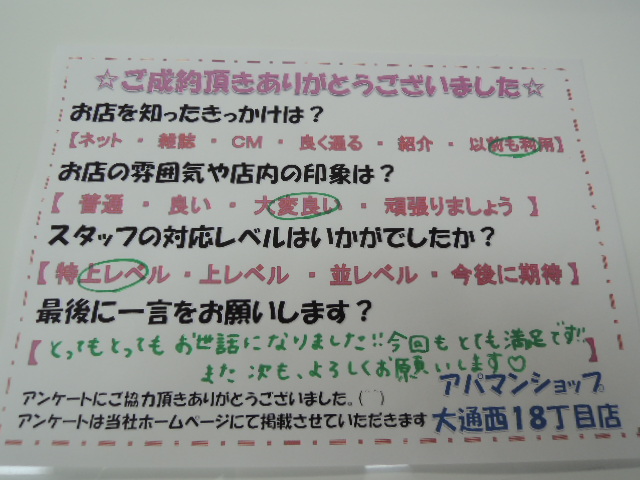 ☆ご成約頂きありがとうございました☆
お店を知ったきっかけは？
【ネット ・ 雑誌 ・ CM ・ 良く通る ・ 紹介 ・ 以前も利用】
お店の雰囲気や店内の印象は？
【 普通 ・ 良い ・ 大変良い ・ 頑張りましょう 】
スタッフの対応レベルはいかがでしたか？
【 特上レベル ・ 上レベル ・ 並レベル ・ 今後に期待 】
最後に一言をお願いします？
【とってもとってもお世話になりました!!今回もとても満足です!!
また次も、よろしくお願いします♡】
アンケートにご協力頂きありがとうございました。(
アパマンショップ
アンケートは当社ホームページにて掲載させていただきます
大通西18丁目店